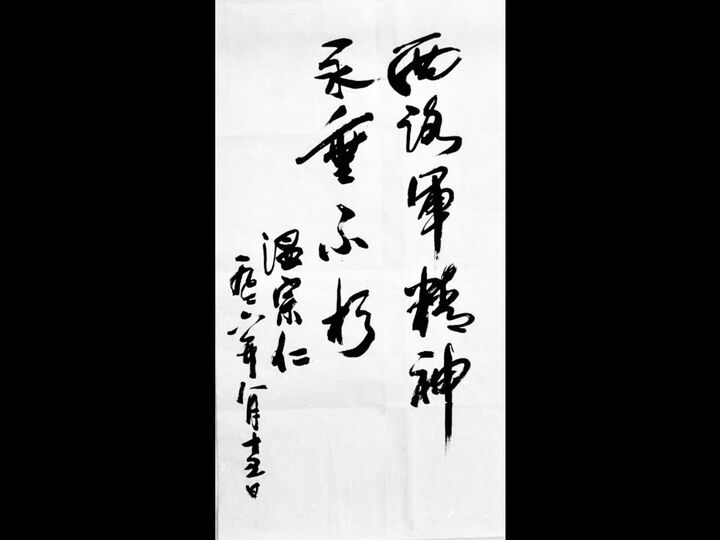 西路軍精神
永垂不朽
温宗仁
六年八月十五日